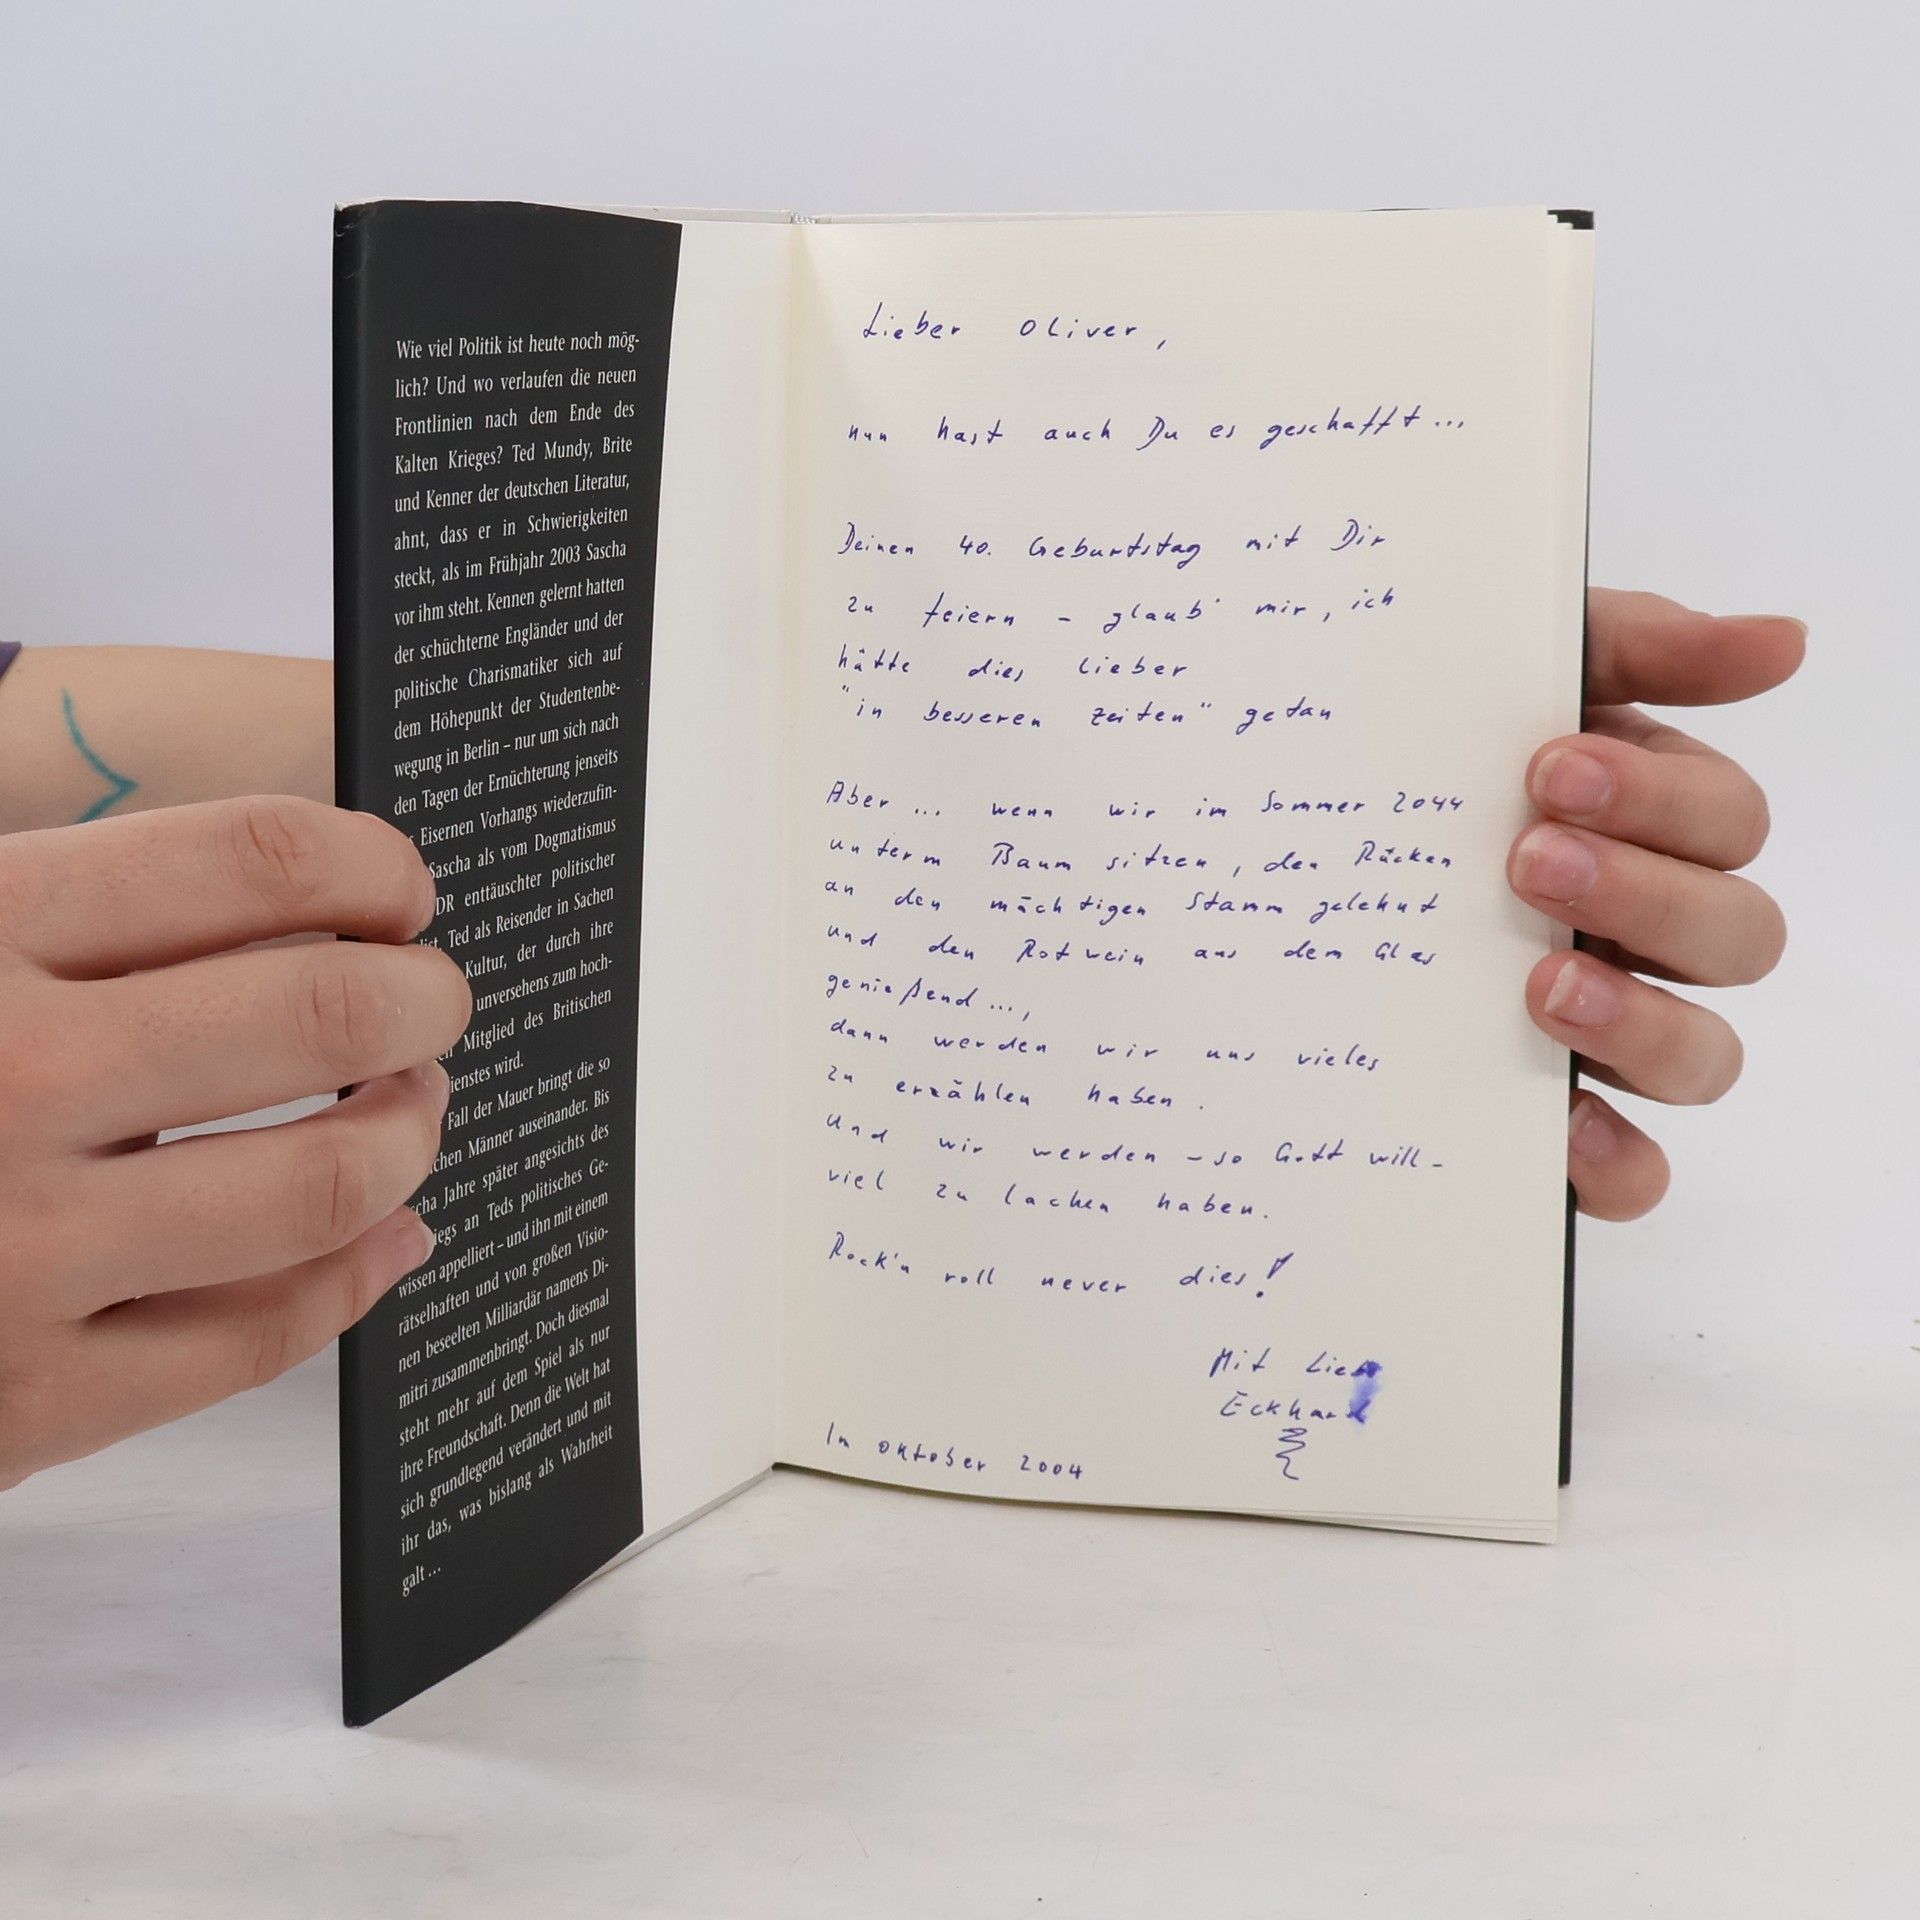 Wie viel Politik ist heute noch mög-
lich? Und wo verlaufen die neuen
Frontlinien nach dem Ende des
Kalten Krieges? Ted Mundy, Brite
und Kenner der deutschen Literatur,
ahnt, dass er in Schwierigkeiten
steckt, als im Frühjahr 2003 Sascha
vor ihm steht. Kennen gelernt hatten
der schüchterne Engländer und der
politische Charismatiker sich auf
dem Höhepunkt der Studentenbe-
wegung in Berlin – nur um sich nach
den Tagen der Ernüchterung jenseits
Eisernen Vorhangs wiederzufin-
Sascha als vom Dogmatismus
DR enttäuschter politischer
Ted als Reisender in Sachen
Kultur, der durch ihre
unversehens zum hoch-
Mitglied des Britischen
ienstes wird.
Fall der Mauer bringt die so
chen Männer auseinander. Bis
cha Jahre später angesichts des
iegs an Teds politisches Ge-
wissen appelliert – und ihn mit einem
rätselhaften und von großen Visio-
nen beseelten Milliardär namens Di-
mitri zusammenbringt. Doch diesmal
steht mehr auf dem Spiel als nur
ihre Freundschaft. Denn die Welt hat
sich grundlegend verändert und mit
ihr das, was bislang als Wahrheit
galt ...
Lieber Oliver,
nun hast auch Du es geschafft...
Deinen 40. Geburtstag mit Dir
zu feiern – glaub' mir, ich
hätte dies lieber
"in besseren Zeiten" getan
Aber ... wenn wir im Sommer 2044
unterm Baum sitzen, den Rücken
an den mächtigen Stamm gelehnt
und den Rotwein aus dem Glas
genießend ...,
dann werden wir uns vieles
zu erzählen haben.
Und wir werden – so Gott will –
viel zu lachen haben.
Rock'n roll never dies!
Mit
Eckhard
Im Oktober 2004